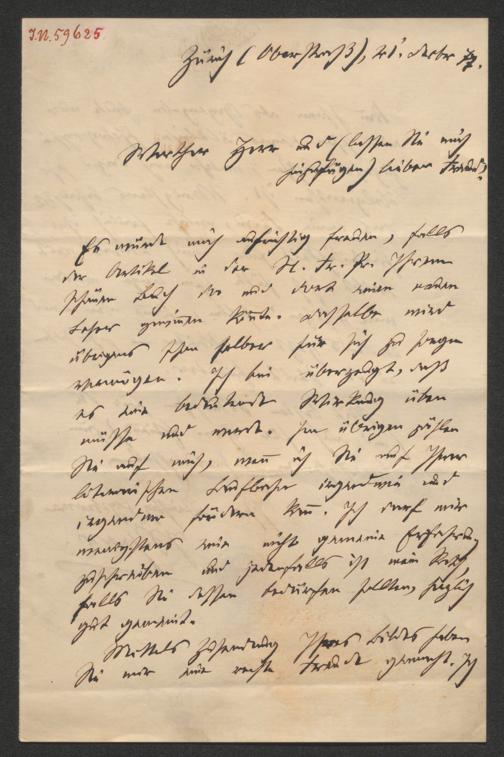 I.N. 59625
Zürich (Oberstraß), 21.
Werther Herr und (lassen Sie mich
hinzufügen) lieber Freund,
Es würde mich aufrichtig freuen, falls
der Artikel in der N. Fr. Pr. Ihrem
schönen Buch da und dort einen neuen
Leser gewinnen könnte. Dasselbe wird
übrigens schon selber für sich zu sorgen
vermögen. Ich bin überzeugt, daß
es eine bedeutende Wirkung üben
müsse und werde. Im übrigen zählen
Sie auf mich, wenn ich Sie auf Ihrer
literarischen Laufbahn irgendwie und
irgendwo fördern kann. Ich darf mir
wenigstens eine nicht gemeine Erfahrung
zuschreiben und jedenfalls ist mein Rath,
falls Sie dessen bedürfen sollten, herzlich
gut gemeint.
Mittels Zusendung Ihres Bildes haben
Sie mir eine rechte Freude gemacht. Ich